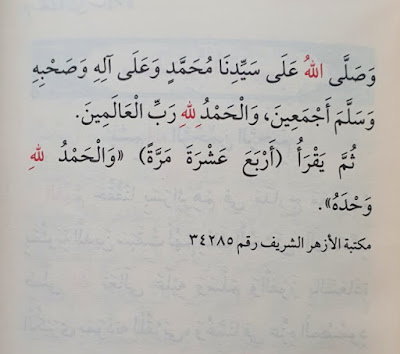 وَصَلَّى اللهُ عَلَى سَيِّدِنَا مُحَمَّدٍ وَعَلَى آلِهِ وَصَحْبِهِ
وَسَلَّمَ أَجْمَعِينَ، وَالْحَمْدُ لِلهِ رَبِّ الْعَالَمِينَ.
ثُمَّ يَقْرَأُ (أَرْبَعَ عَشْرَةَ مَرَّةً) «وَالْحَمْدُ لِلهِ
وَحْدَهُ».
مكتبة الأزهر الشريف رقم ٣٤٢٨٥